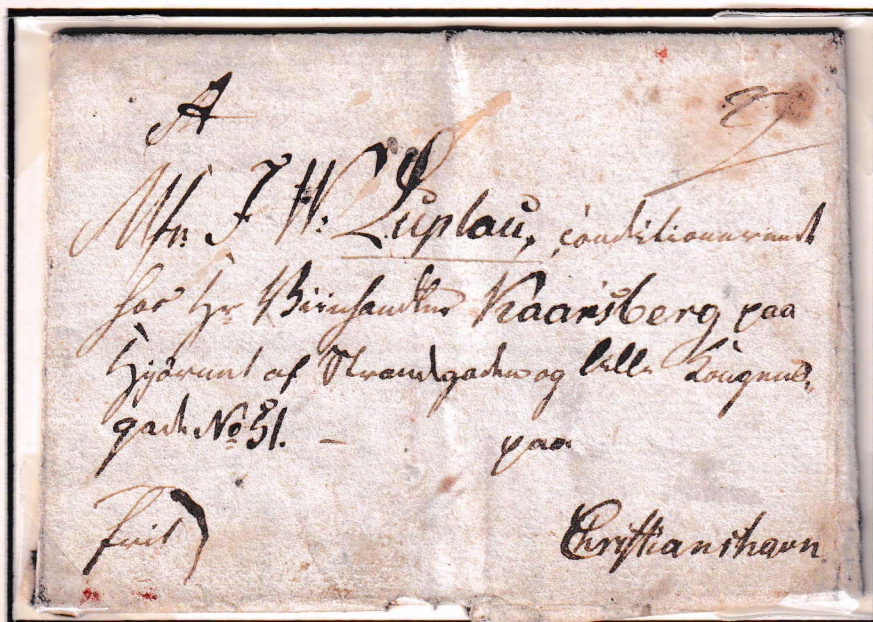 A
J. W. Luplau, conditionerende
hos Hr Viinhandler Kaarsberg paa
Hjørnet af Strandgaden og lille Kongens
gade No 51. – paa
frit Christianshavn